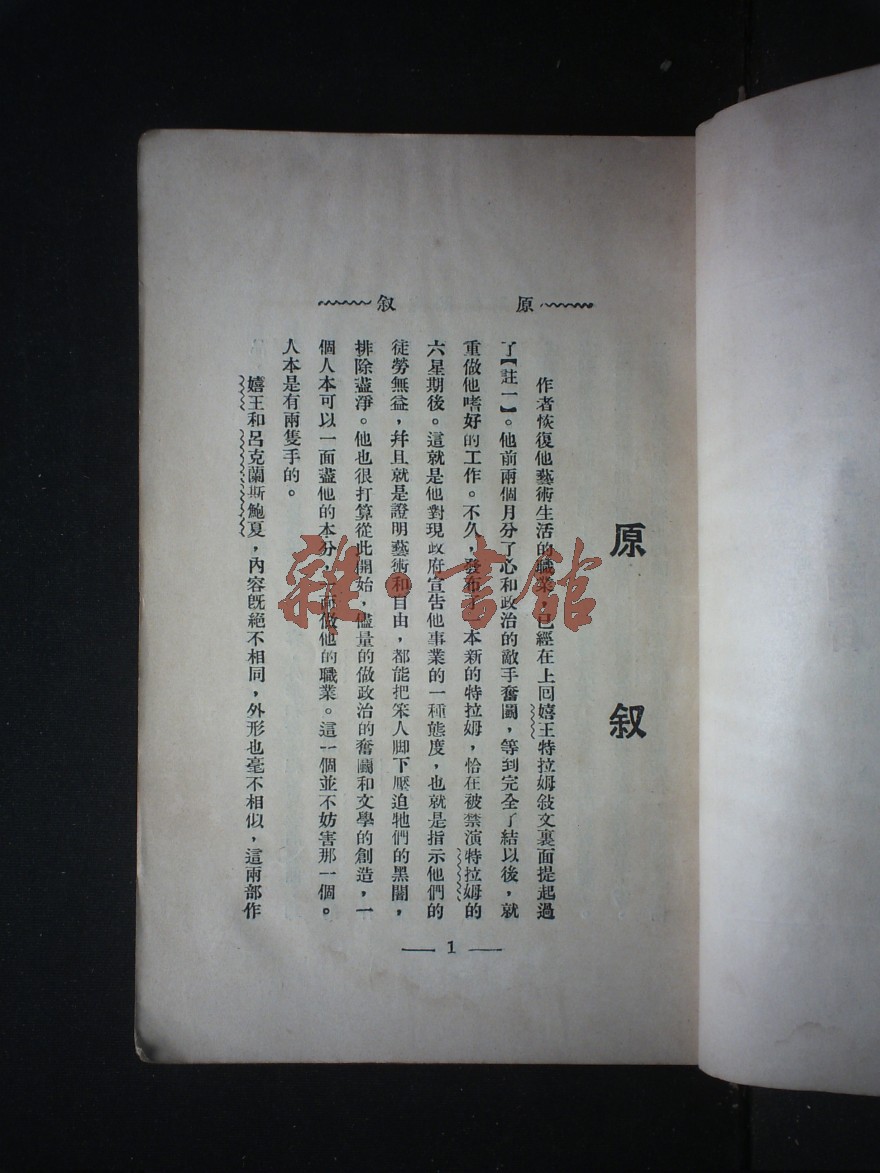 原 叙
原 叙
作者恢復他藝術生活的職業，已經在上回嬉王特拉姆敍文裏面提起過
了【註一】。他前兩個月分了心和政治的敵手奮鬭，等到完全了結以後，就
重做他嗜好的工作。不久，發布了一本新的特拉姆，恰在被禁演特拉姆的
六星期後。這就是他對現政府宣告他事業的一種態度，也就是指示他們的
徒勞無益，幷且就是證明藝術和自由，都能把笨人脚下壓迫牠們的黑闇，
排除盡淨。他也很打算從此開始，儘量的做政治的奮鬭和文學的創造，一
個人本可以一面盡他的本分，一面做他的職業。這一個並不妨害那一個。
人本是有兩隻手的。
嬉王和呂克蘭斯鮑夏，內容旣絕不相同，外形也毫不相似，這兩部作
1
雜·書館